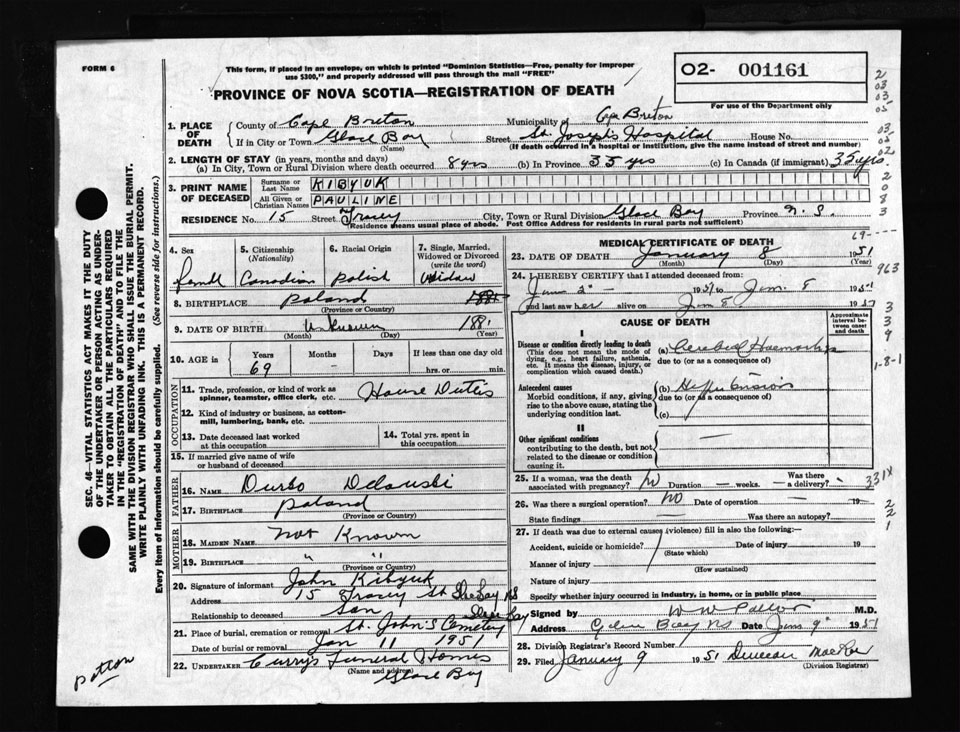 FORM 6
This form, if placed in an envelope, on which is printed "Dominion Statistics—Free, penalty for improper
use $300," and properly addressed will pass through the mail "FREE"
PROVINCE OF NOVA SCOTIA—REGISTRATION OF DEATH
O2- 001161
For use of the Department only
1. PLACE OF DEATH
County of Cape Breton Municipality of Cape Breton
If in City or Town Glace Bay Street St. Joseph's Hospital House No.
(Name) (If death occurred in a hospital or institution, give the name instead of street and number)
2. LENGTH OF STAY (in years, months and days)
(a) In City, Town or Rural Division where death occurred 8 yrs (b) In Province 35 yrs (c) In Canada (if immigrant) 35 yrs
3. PRINT NAME OF DECEASED
Surname or Last Name KIBYUK
All Given or Christian Names PAULINE
RESIDENCE No. 15 Street Tracey City, Town or Rural Division Glace Bay Province N.S.
(Residence means usual place of abode. Post Office Address for residents in rural parts not sufficient)
4. Sex
5. Citizenship (Nationality) Canadian
6. Racial Origin Polish
7. Single, Married, Widowed or Divorced (write the word) Widow
8. BIRTHPLACE Poland 1881
(Province or Country)
9. DATE OF BIRTH Unknown 1881
(Month) (Day) (Year)
10. AGE in Years Months Days If less than one day old
69 - hrs. or min.
OCCUPATION
11. Trade, profession, or kind of work as spinner, teamster, office clerk, etc. House Duties
12. Kind of industry or business, as cotton-mill, lumbering, bank, etc.
13. Date deceased last worked at this occupation
14. Total yrs. spent in this occupation
15. If married give name of wife or husband of deceased
FATHER
16. NAME Durbo
17. BIRTHPLACE Poland
(Province or Country)
MOTHER
18. MAIDEN NAME Not Known
19. BIRTHPLACE " "
(Province or Country)
20. Signature of informant John Kibyuk
Address 15 Tracey St Glace Bay NS
Relationship to deceased Son Glace Bay
21. Place of burial, cremation or removal St. John's Cemetery
Date of burial or removal Jan 11 1951
22. UNDERTAKER Curry's Funeral Homes
(Name and address)
Glace Bay
MEDICAL CERTIFICATE OF DEATH
23. DATE OF DEATH January 8 1951
(Month) (Day) (Year)
24. I HEREBY CERTIFY that I attended deceased from:
Jan 2" - 1951 to Jan. 8 1951
and last saw her alive on Jan 8 1951
CAUSE OF DEATH
Approximate interval between onset and death
I
Disease or condition directly leading to death (a) Cerebral Haemorrhage
(This does not mean the mode of dying, e.g., heart failure, asthenia, etc. It means the disease, injury, or complication which caused death.)
due to (or as a consequence of)
Antecedent causes (b) Hypertension
Morbid conditions, if any, giving rise to the above cause, stating the underlying condition last.
due to (or as a consequence of)
(c)
II
Other significant conditions contributing to the death, but not related to the disease or condition causing it. —
25. If a woman, was the death associated with pregnancy? No Duration — weeks. — Was there a delivery? -
26. Was there a surgical operation? NO Date of operation — 19
State findings — Was there an autopsy?
27. If death was due to external causes (violence) fill in also the following:—
Accident, suicide or homicide? Date of injury 19
(State which)
Manner of injury
(How sustained)
Nature of injury
Specify whether injury occurred in industry, in home, or in public place
Signed by M.D.
Address Glace Bay NS Date Jan 9" 1951
28. Division Registrar's Record Number
29. Filed January 9 1951 Duncan
(Division Registrar)
SEC. 46 VITAL STATISTICS ACT MAKES IT THE DUTY
OF THE UNDERTAKER OR PERSON ACTING AS UNDER-
TAKER TO OBTAIN ALL THE PARTICULARS REQUIRED
IN THE "REGISTRATION OF DEATH" AND TO FILE THE
SAME WITH THE DIVISION REGISTRAR WHO SHALL ISSUE THE BURIAL PERMIT.
WRITE PLAINLY WITH UNFADING INK. THIS IS A PERMANENT RECORD.
Every item of information should be carefully supplied. (See reverse side for instructions.)
Patton
2
03
03
05
03
05
02
2
0
8
3
69-
963
3
3
9
1-8-1
331X
2
2
1